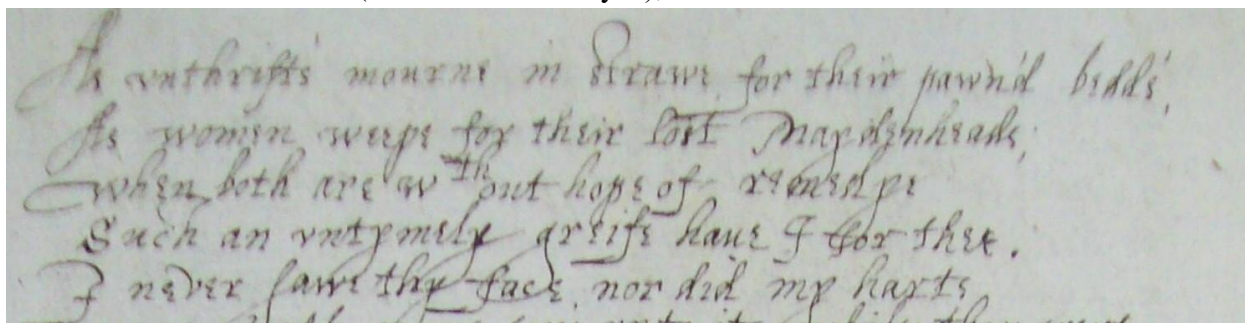 As vnthrifts mourne in strawe for their pawn'd bedds,
As women weepe for their lost Maydenheads,
when both are wthout hope of remedye
Such an vntymely greife haue I for thee.
I never sawe thy face nor did my harte